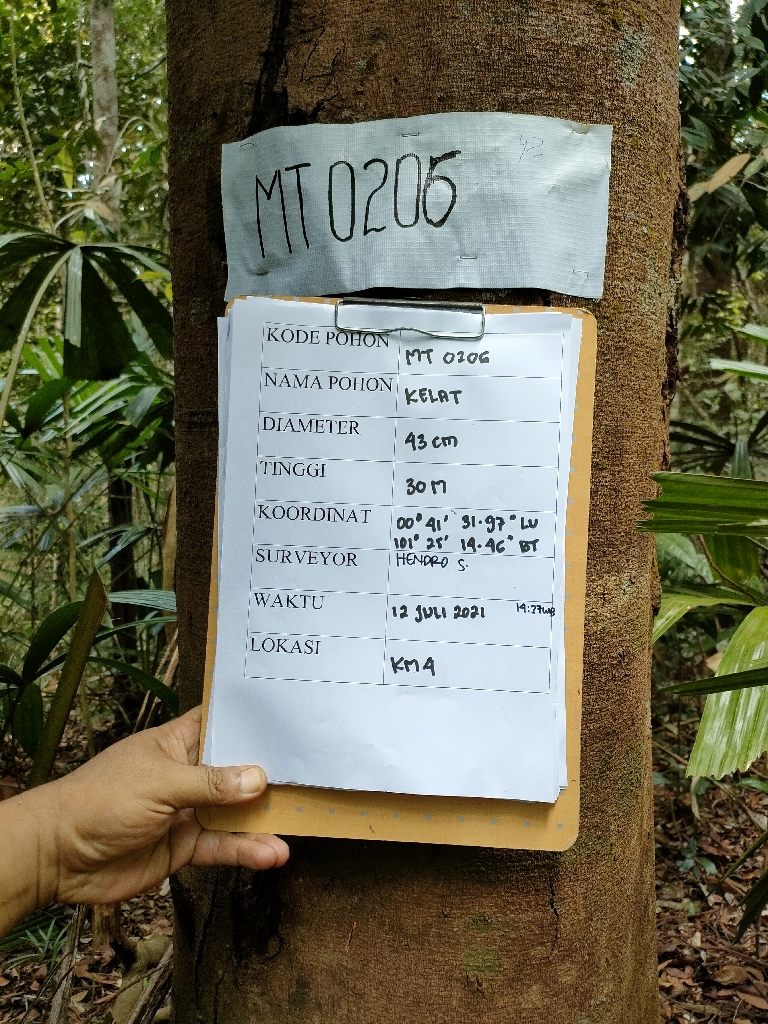 42
MT 0206
KODE POHON MT 0206
NAMA POHON KELAT
DIAMETER 43 cm
TINGGI 30 M
KOORDINAT 00° 41' 31.97" LU
101° 25' 14.46" BT
SURVEYOR HENDRO S.
WAKTU 12 JULI 2021 14:27 WIB
LOKASI KM 4